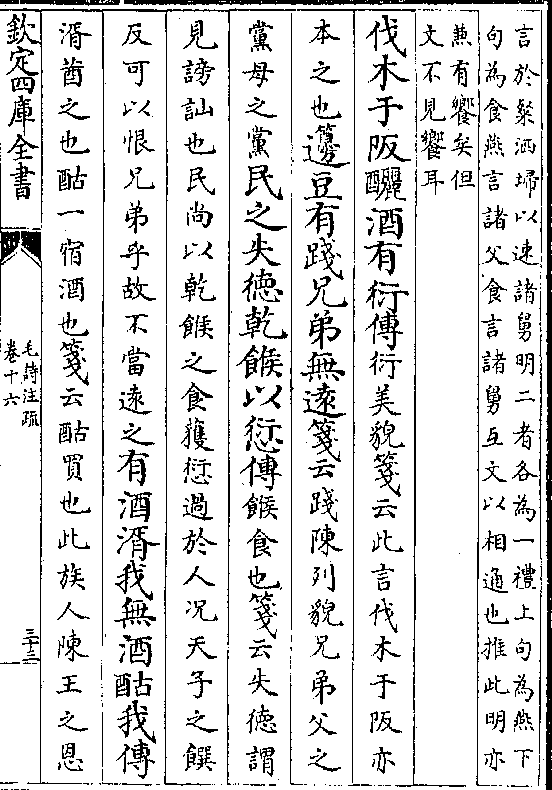 言於粲洒埽以速諸舅明二者各為一禮上句為燕下
句為食燕言諸父食言諸舅互文以相通也推此明亦
焦有饗矣但
文不見饗耳
伐木于阪釃酒有衍傳衍美貌箋云此言伐木于阪亦
本之也籩豆有踐兄弟無遠箋云踐陳列貌兄弟父之
黨母之黨民之失徳乾餱以愆傳餱食也箋云失徳謂
見謗訕也民尚以乾餱之食獲愆過於人况天子之饌
反可以恨兄弟乎故不當遠之有酒湑我無酒酤我傳
湑莤之也酤一宿酒也箋云酤買也此族人陳王之恩
欽定四庫全書
毛詩注疏
卷十六
三十三